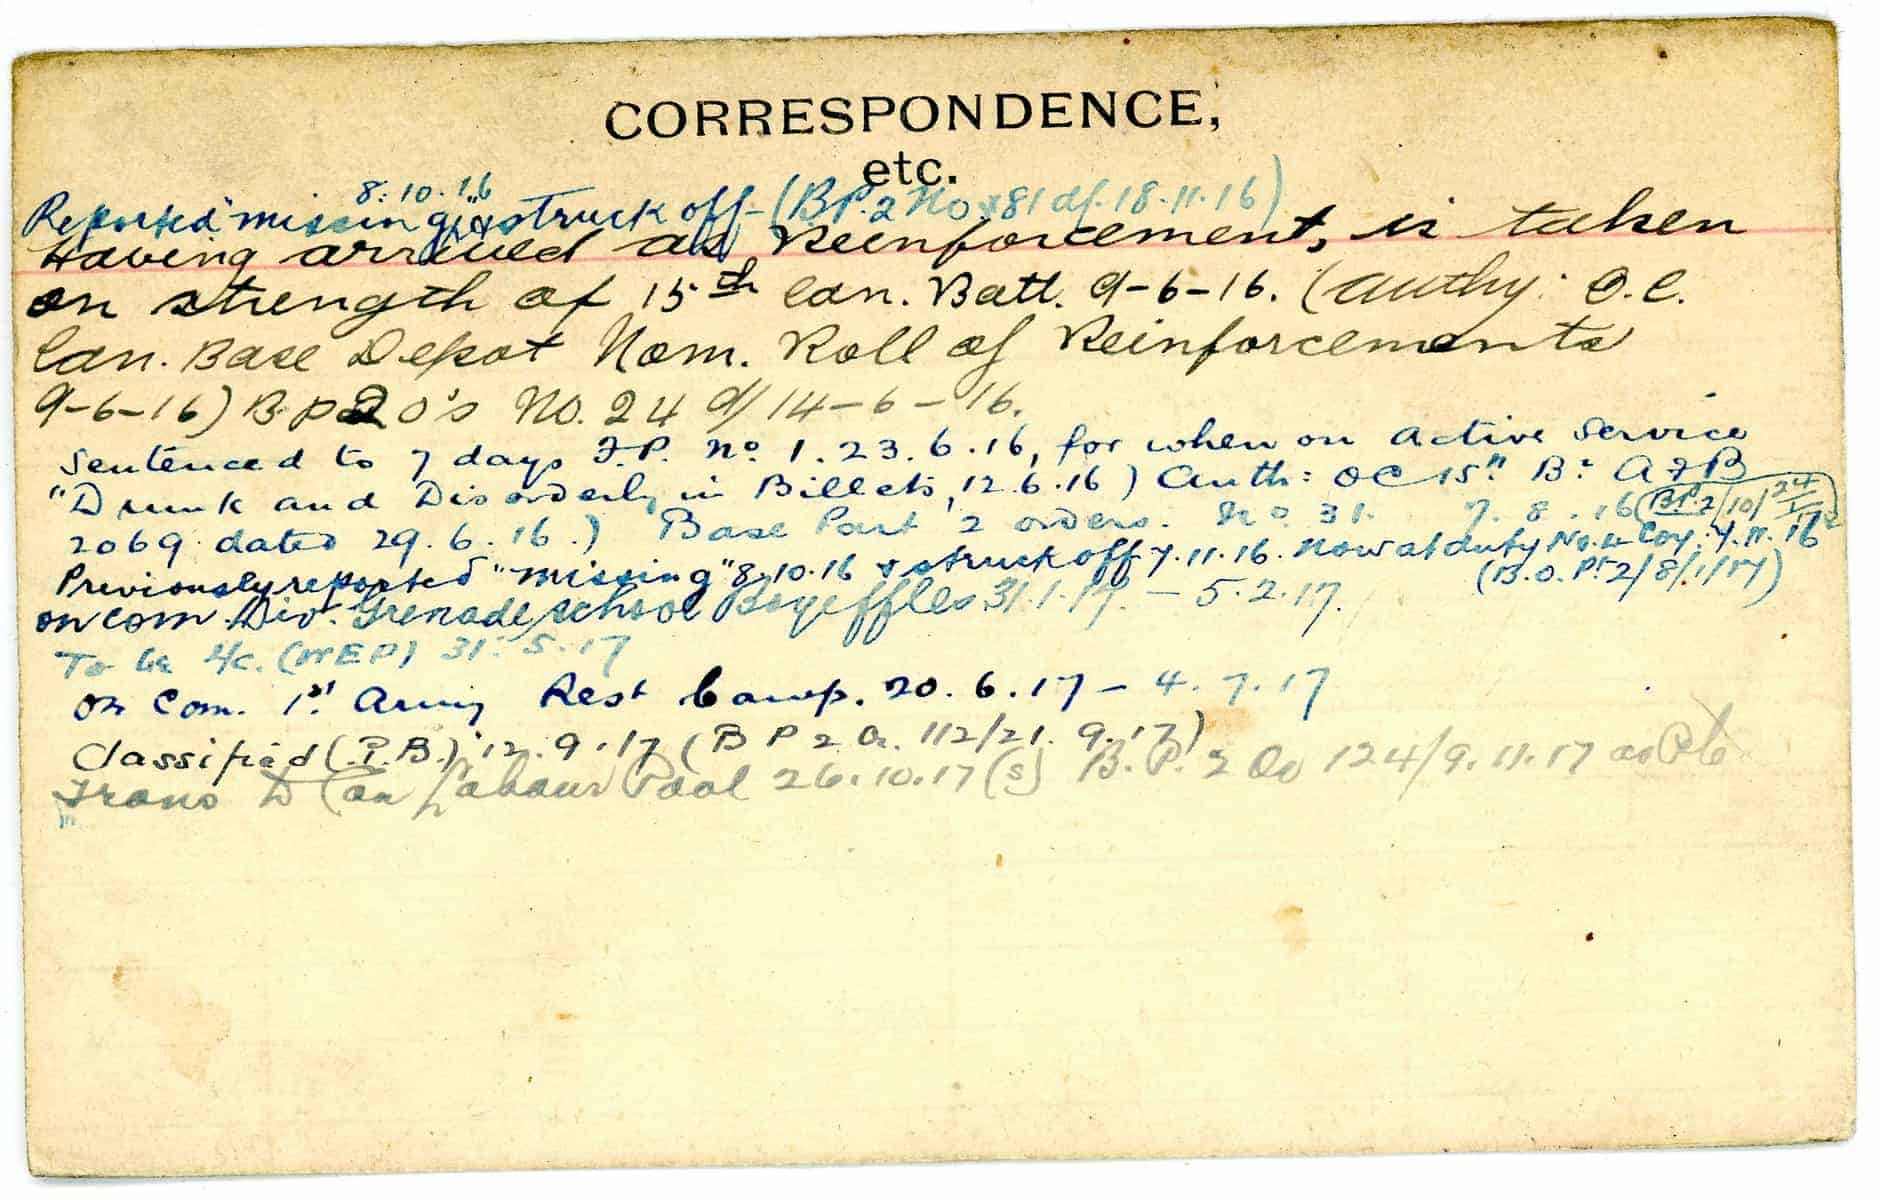 CORRESPONDENCE,
etc.
8.10.16
Reported "missing" & struck off - (BP. 2 No 81 df. 18.11.16)
Having arrived as Reinforcement, is taken
on strength of 15th Can. Batt. 9-6-16. (Authy: O.C.
Can. Base Depot Nom. Roll of Reinforcements
9-6-16) B.P.2 O's No. 24 d/14-6-16.
Sentenced to 7 days F.P. No 1. 23.6.16, for when on Active Service
"Drunk and Disorderly in Billets, 12.6.16) Auth: OC 15" Bn AFB
2069 dated 29.6.16.) Base Part 2 orders. No 31. 7.8.16
Previously reported "missing" 8.10.16 & struck off 7.11.16. Now at duty No. 4 Coy. 7.11.16
(B.O. Pt 2/8/1/17)
on Com. Div. Grenade School 31.1.17. - 5.2.17.
To be 31.5.17
on Com. 1st Army Rest Camp. 20.6.17 - 4.7.17
Classified (P.B.) 12.9.17 (B P 2 O. 112/21.9.17)
Trans to Can Labour Pool 26.10.17 (S) B.P. 2 Oo 124/9.11.17 as Pte